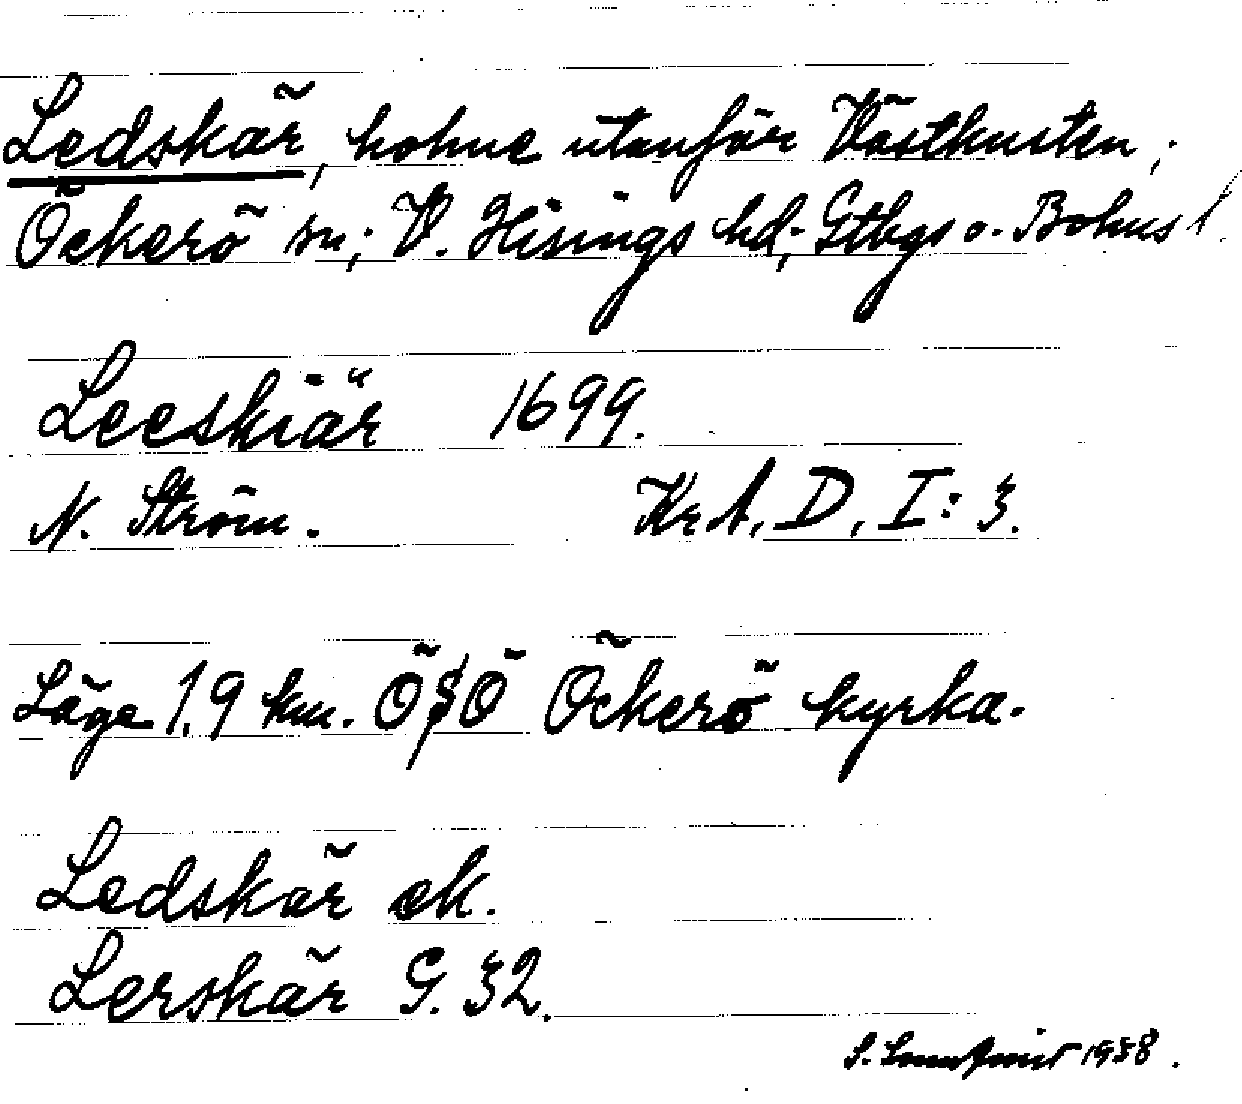 Ledskär, holme utanför Västkusten;
Öckerö sn; V. Hisings hd; Gtbgs o. Bohus l.
Leeskiär 1699.
N. Ström. KrA, D, I: 3.
Läge 1,9 km. ÖSÖ Öckerö kyrka.
Ledskär ek.
Lerskär G. 32.
S. 1938.